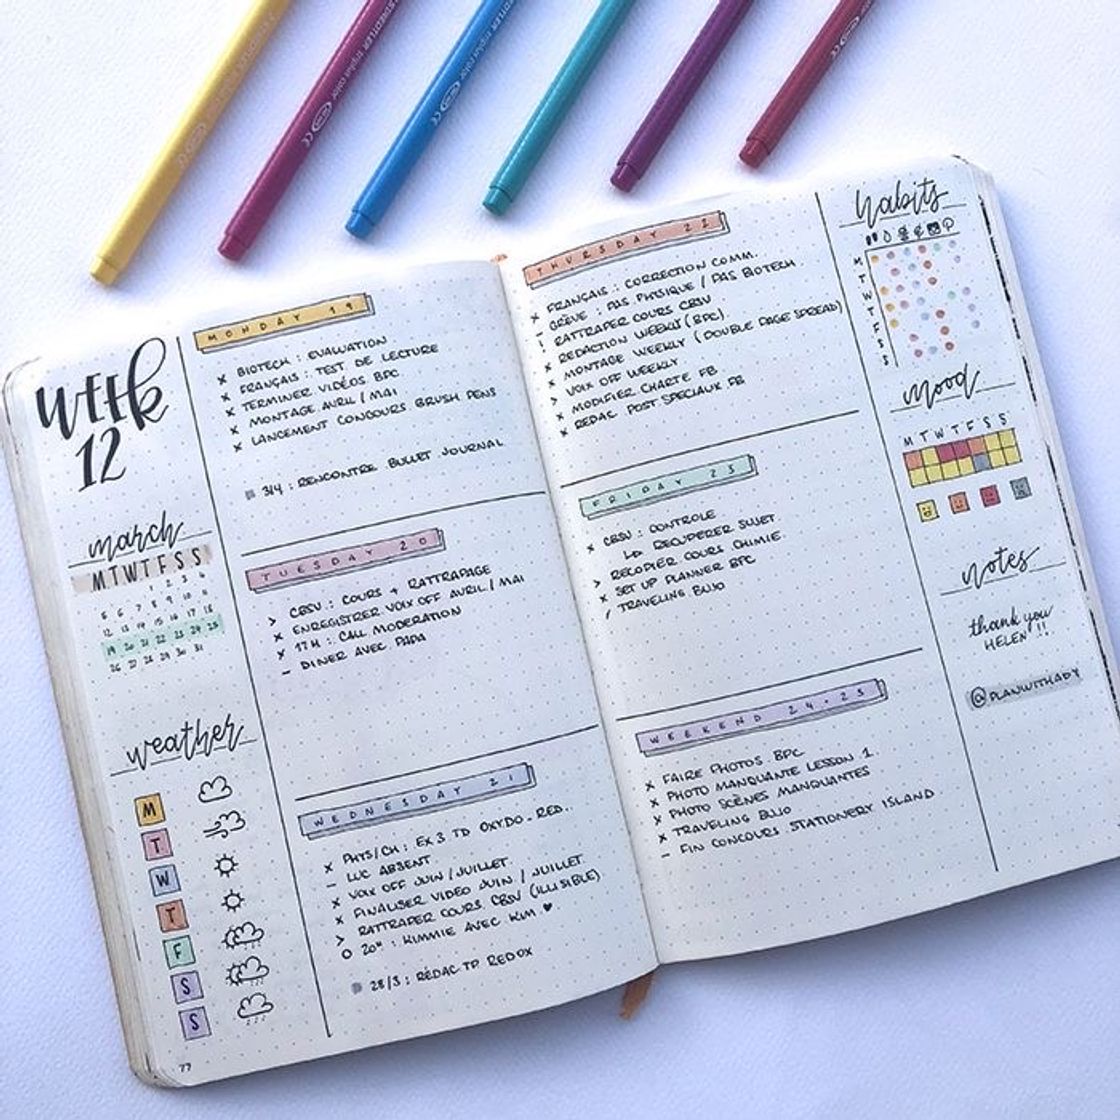 STAEDTLER triplus color
STAEDTLER triplus color
WEEK
12
march
M T W T F S S
1 2 3 4
5 6 7 8 9 10 11
12 13 14 15 16 17 18
19 20 21 22 23 24 25
26 27 28 29 30 31
weather
M
T
W
T
F
S
S
77
MONDAY 19
x BIOTECH : EVALUATION
x FRANÇAIS : TEST DE LECTURE
x TERMINER VIDÉOS BPC
x MONTAGE AVRIL / MAI
x LANCEMENT CONCOURS BRUSH PENS
3/4 : RENCONTRE BULLET JOURNAL
TUESDAY 20
> CBSV : COURS + RATTRAPAGE
x ENREGISTRER VOIX OFF AVRIL / MAI
x 17H : CALL MODERATION
– DINER AVEC PAPA
WEDNESDAY 21
x PHYS/CH : EX 3 TD OXYDO-RED..
– LUC ABSENT
x VOIX OFF JUIN / JUILLET
x FINALISER VIDEO JUIN / JUILLET
> RATTRAPER COURS CBSV (ILLISIBLE)
O 20H : KIMMIE AVEC KIM ♥
28/3 : RÉDAC TP REDOX
THURSDAY 22
x FRANÇAIS : CORRECTION COMM.
– GRÈVE : PAS PHYSIQUE / PAS BIOTECH.
RATTRAPER COURS CBSV
x REDACTION WEEKLY (BPC)
x MONTAGE WEEKLY (DOUBLE PAGE SPREAD)
> VOIX OFF WEEKLY
x MODIFIER CHARTE FB
x REDAC POST SPECIAUX FB
FRIDAY 23
x CBSV : CONTROLE
RECUPERER SUJET
> RECOPIER COURS CHIMIE
x SET UP PLANNER BPC
/ TRAVELING BUJO
WEEKEND 24 • 25
x FAIRE PHOTOS BPC
x PHOTO MANQUANTE LESSON 1.
x PHOTO SCÈNES MANQUANTES
x TRAVELING BUJO
– FIN CONCOURS STATIONERY ISLAND
habits
M
T
W
T
F
S
S
mood
M T W T F S S
notes
thank you
HELEN !!
@PLANWITHADY